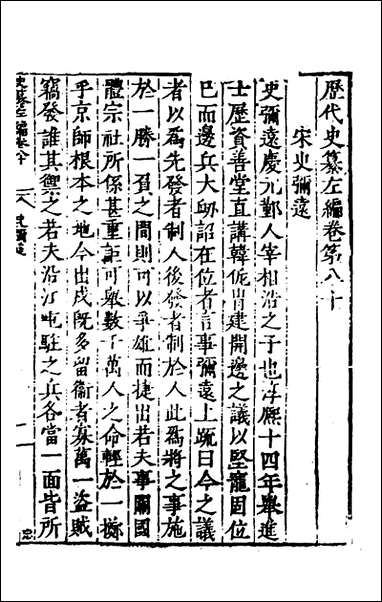 歷代史纂左編卷第八十
宋史彌遠
史彌遠慶元鄞人宰相浩之子也淳熙十四年舉進
士歷資善堂直講韓侂胄建開邊之議以堅寵固位
已而邊兵大衂詔在位者言事彌遠上疏曰今之議
者以為先發者制人後發者制於人此為將之事施
於一勝一負之間則可以爭雄而捷出若夫事關國
體宗社所係甚重詎可舉數千萬人之命輕於一擲
乎京師根本之地今出戍既多留衛者寡萬一盜賊
竊發誰其禦之若夫沿江屯駐之兵各當一面皆所